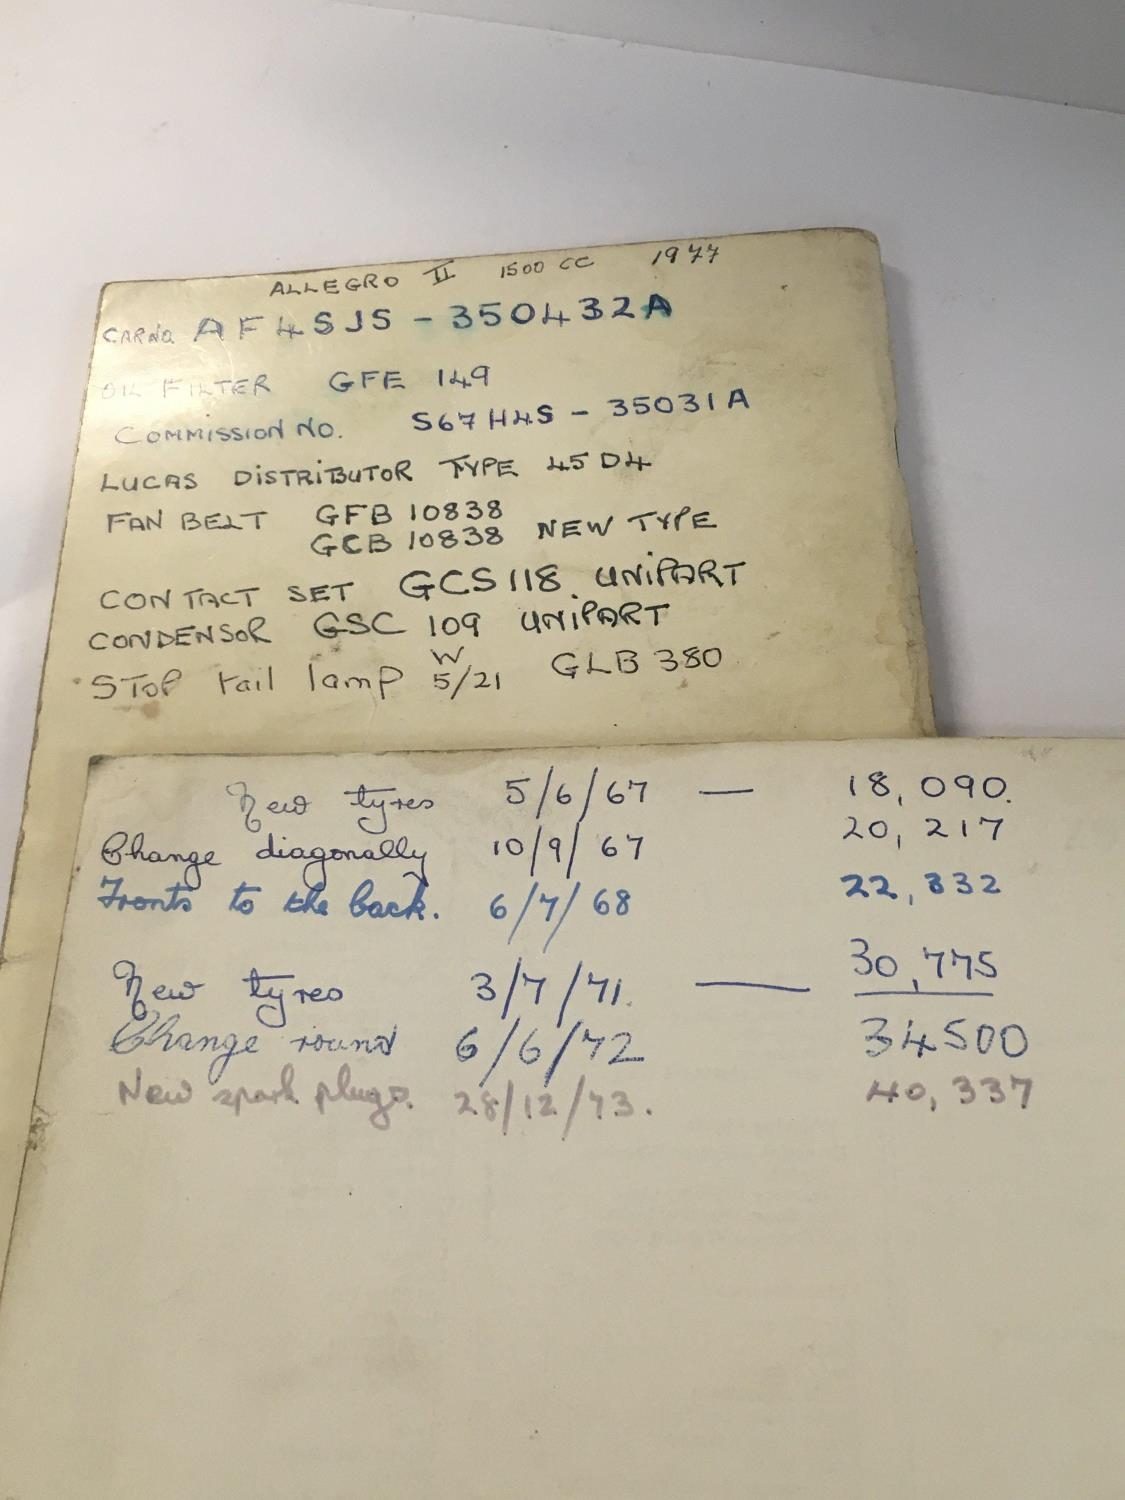 ALLEGRO II 1500 CC 1977
CAR NO. AF4SJS - 350432A
OIL FILTER GFE 149
COMMISSION NO. S67H4S - 35031A
LUCAS DISTRIBUTOR TYPE 45D4
FAN BELT GFB 10838
GCB 10838 NEW TYPE
CONTACT SET GCS118 UNIPART
CONDENSOR GSC 109 UNIPART
STOP tail lamp W 5/21 GLB 380
New tyres 5/6/67 — 18,090.
Change diagonally 10/9/67 20,217
Fronts to the back. 6/7/68 22,332
New tyres 3/7/71. — 30,775
Change round 6/6/72 34500
New spark plugs. 28/12/73. 40,337